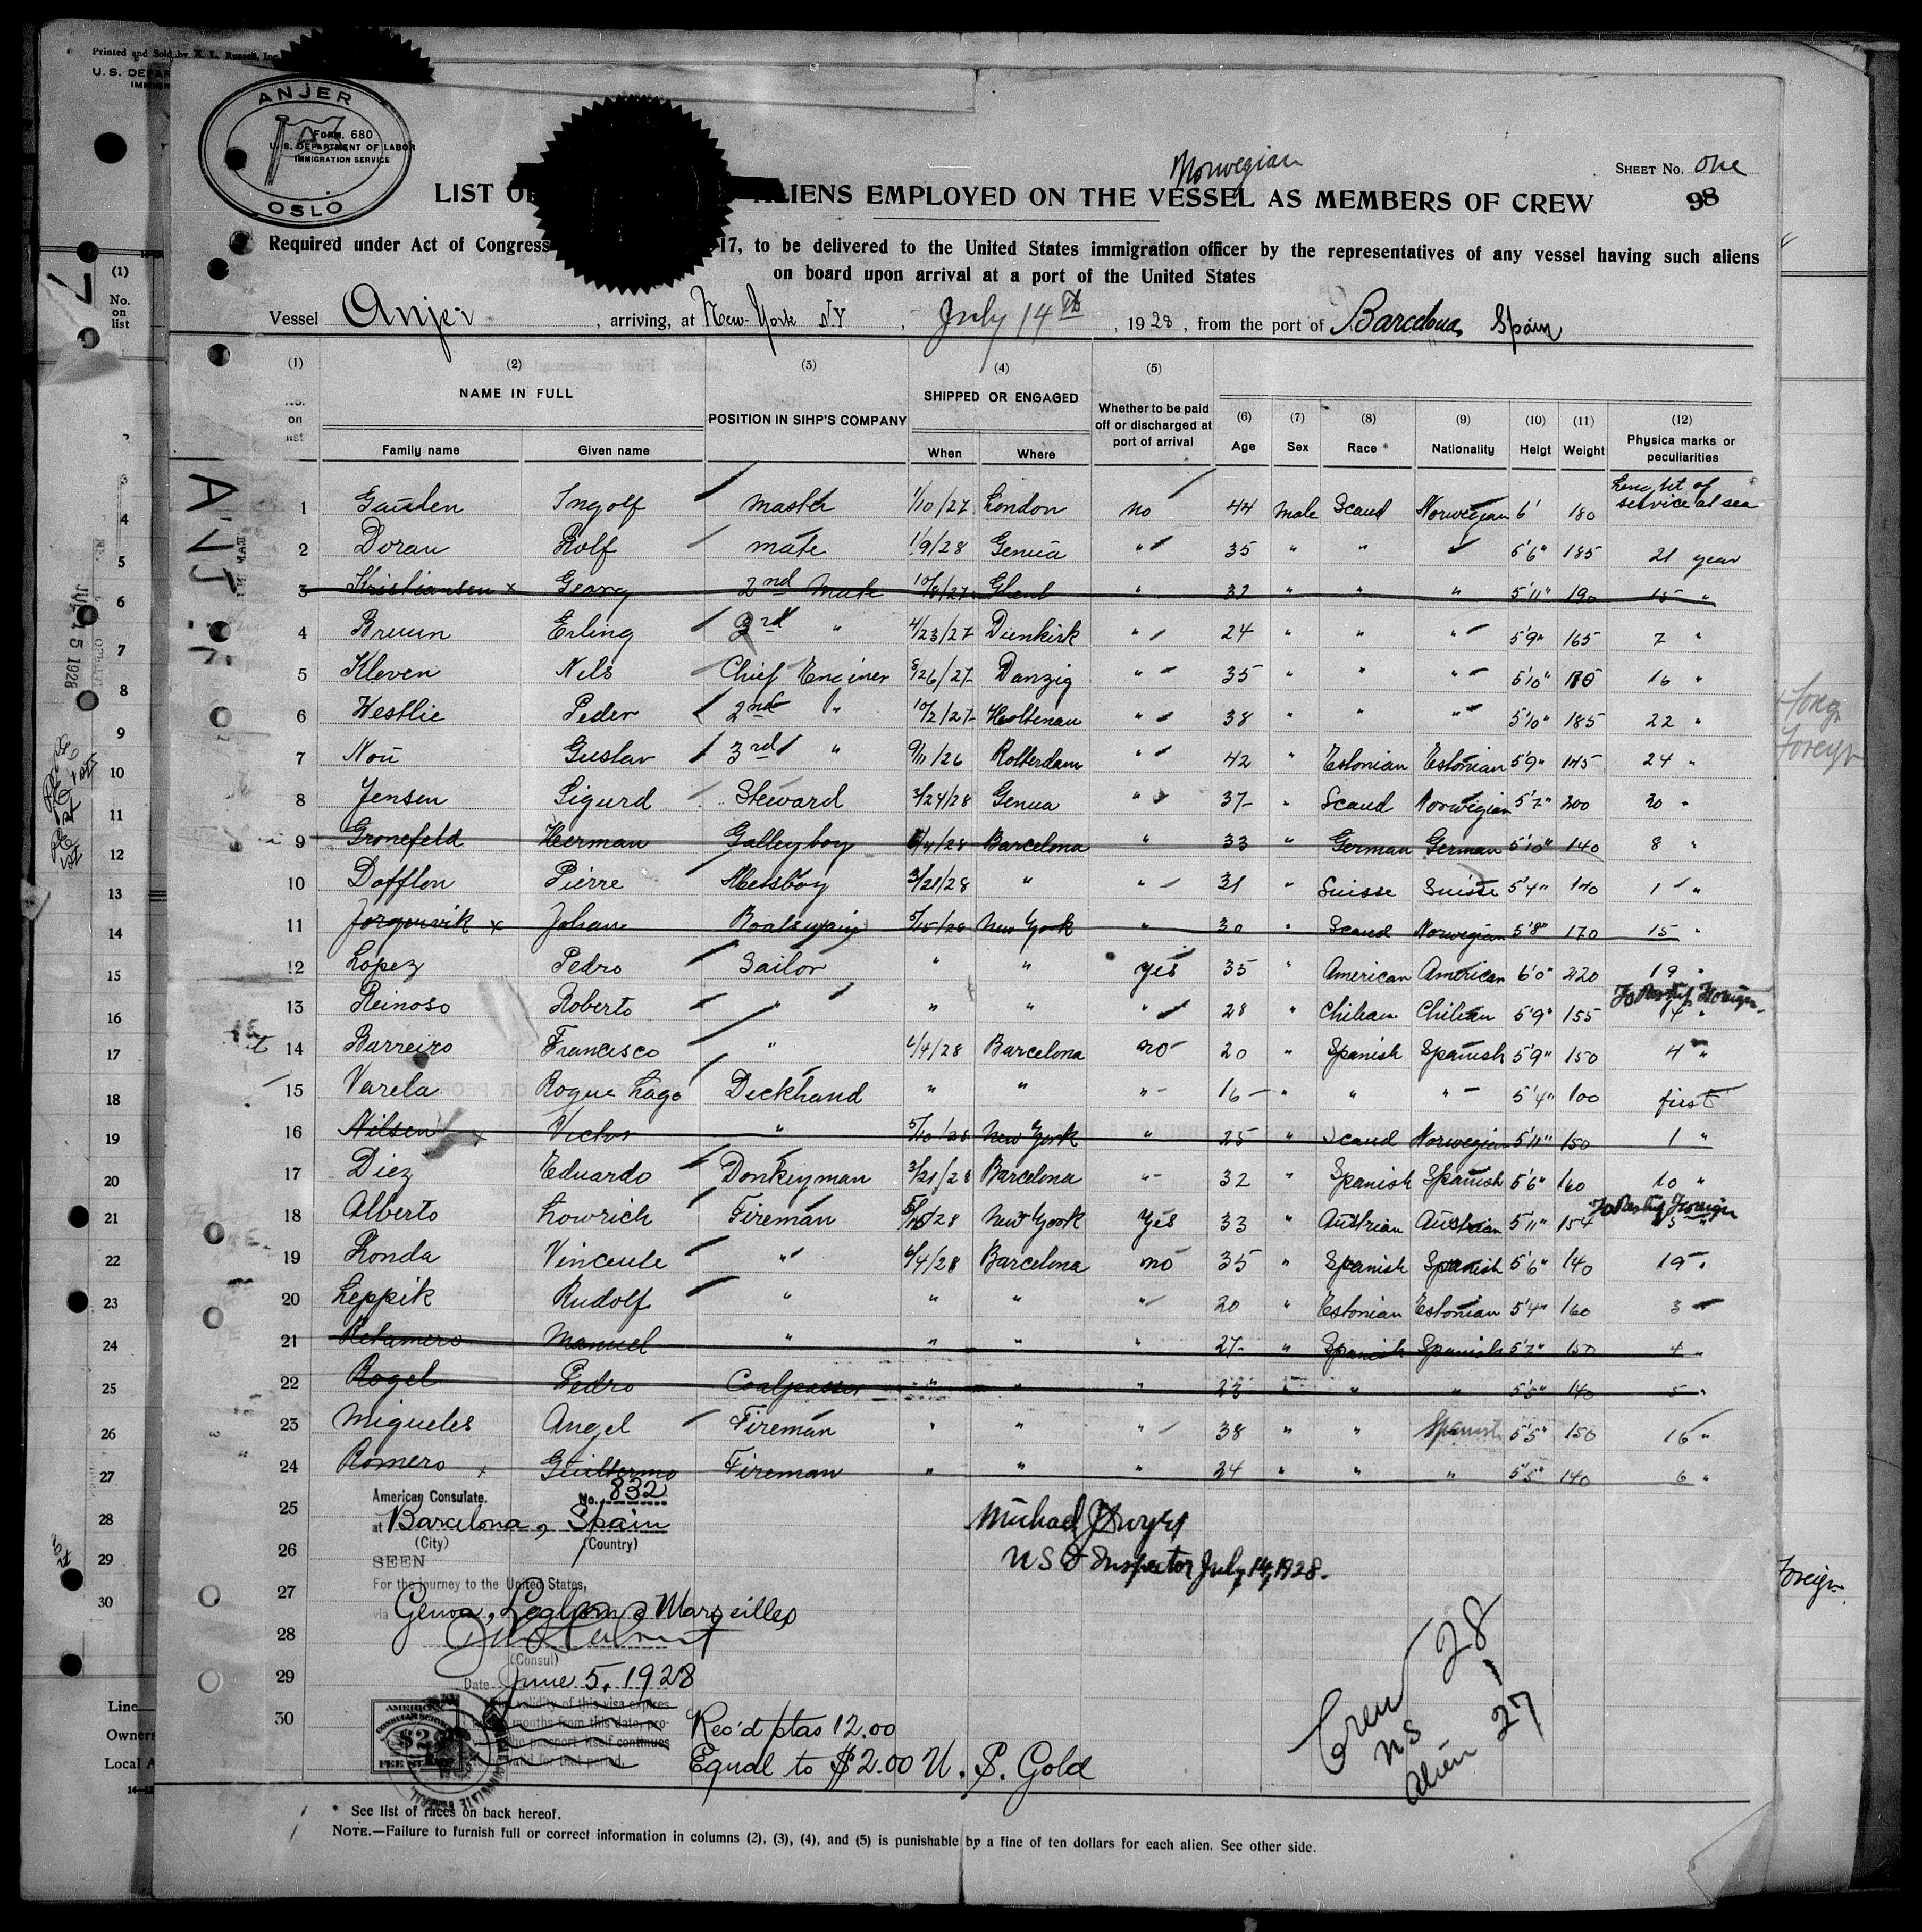 Printed and Sold by A. L. Russell, Inc.
ANJER
OSLO
FORM. 680
U. S. DEPARTMENT OF LABOR
IMMIGRATION SERVICE
Norwegian
SHEET No. One
98
LIST OF ALIENS EMPLOYED ON THE VESSEL AS MEMBERS OF CREW
Required under Act of Congress 17, to be delivered to the United States immigration officer by the representatives of any vessel having such aliens
on board upon arrival at a port of the United States
Vessel Anjer, arriving, at New-York N.Y, July 14th, 1928, from the port of Barcelona, Spain
(1) (2) (3) (4) (5) (6) (7) (8) (9) (10) (11) (12)
No. on list NAME IN FULL POSITION IN SIHP'S COMPANY SHIPPED OR ENGAGED Whether to be paid off or discharged at port of arrival Age Sex Race * Nationality Heigt Weight Physica marks or peculiarities
Family name Given name When Where
Lenght of service at sea
1 Gausen Ingolf Master 1/10/27 London no 44 male Scand Norwegian 6' 180
2 Doran Rolf mate 1/9/28 Genua " 35 " " " 5'6" 185 21 year
3 Kristiansen x Georg 2nd Mate 10/8/27 Ghent " 32 " " " 5'11" 190 15 "
4 Bruun Erling 3rd " 4/23/27 Dunkirk " 24 " " " 5'9" 165 7 "
5 Kleven Nils Chief Enginer 8/26/27 Danzig " 35 " " " 5'10" 16 "
6 Westlie Peder 2nd " 10/2/27 Holtenau " 38 " " " 5'10" 185 22 "
7 Nou Gustav 3rd " 9/11/26 Rotterdam " 42 " Estonian Estonian 5'9" 145 24 "
8 Jensen Sigurd Steward 3/24/28 Genua " 37 " Scand Norwegian 5'7" 200 20 "
9 Gronefeld Herman Galleyboy 6/4/28 Barcelona " 33 " German German 5'10" 140 8 "
10 Dafflon Pierre Messboy 3/21/28 " " 31 " Suisse Suisse 5'4" 170 1 "
11 Jorgenvik x Johan Boatswain 5/15/28 New York " 30 " Scand Norwegian 5'8" 170 15 "
12 Lopez Pedro Sailor " " yes 35 " American American 6'0" 220 19 "
13 Reinoso Roberto " " " " 28 " Chilean Chilean 5'9" 155 To Reship Foreign 4 "
14 Barreiro Francisco " 6/4/28 Barcelona no 20 " Spanish Spanish 5'9" 150 4 "
15 Varela Rogue Lago Deckhand " " " 16 " " " 5'4" 100 first
16 Nilsen x Victor " 5/10/28 New York " 25 " Scand Norwegian 5'11" 150 1 "
17 Diez Eduardo Donkeyman 3/21/28 Barcelona " 32 " Spanish Spanish 5'6" 160 10 "
18 Alberto Lowrich Fireman 5/15/28 New York Yes 33 " Austrian Austrian 5'11" 154 To Reship Foreign 5 "
19 Londa Vinceule " 6/4/28 Barcelona no 35 " Spanish Spanish 5'6" 140 19 "
20 Leppik Rudolf " " " " 20 " Estonian Estonian 5'4" 160 3
21 Retamero Manuel " " " " 27 " Spanish Spanish 5'7" 150 4 "
22 Rogel Pedro Coalpasser " " " 23 " " " 5'5" 140 5 "
23 Migueles Angel Fireman " " " 38 " " Spanish 5'5" 150 16 "
24 Romero x Guillermo Fireman " " " 24 " " " 5'5" 140 6 "
25
26
27
28
29
30
American Consulate. No. 832
at Barcelona, Spain
(City) (Country)
SEEN
For the journey to the United States,
via Genoa, Leghorn & Marseilles
(Consul)
Date June 5, 1928
validity of this visa expires
months from this date, pro-
the passport itself continues
valid for that period.
Rec'd ptas 12.00
Equal to $2.00 U. S. Gold
Michael J Dwyer
U S I Inspector July 14, 1928.
Crew 28
US 1
Alien 27
* See list of races on back hereof.
NOTE.—Failure to furnish full or correct information in columns (2), (3), (4), and (5) is punishable by a fine of ten dollars for each alien. See other side.